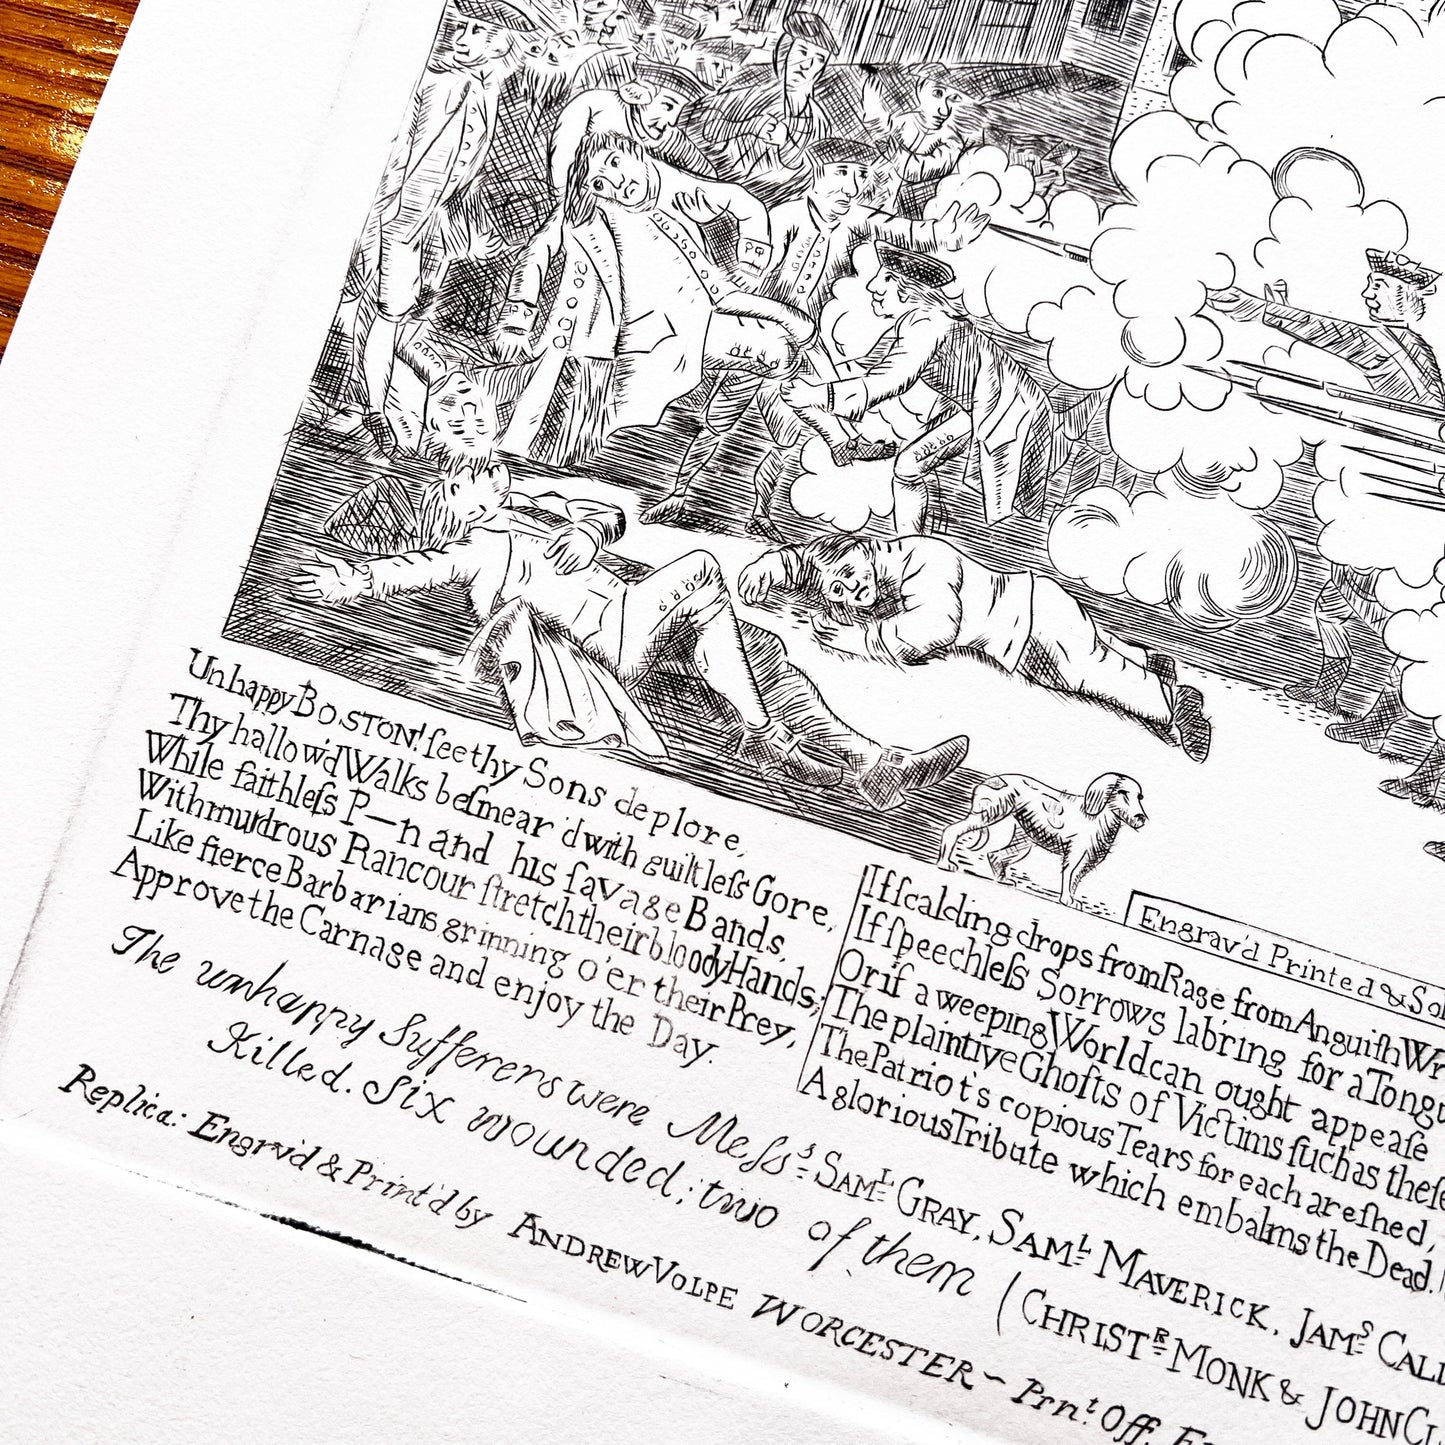 Unhappy BOSTON! ſee thy Sons deplore,
Thy hallow'd Walks beſmear'd with guiltleſs Gore,
While faithleſs P—n and his ſavage Bands,
With murd'rous Rancour ſtretch their bloody Hands;
Like fierce Barbarians grinning o'er their Prey,
Approve the Carnage and enjoy the Day.
If ſcalding drops from Rage from Anguiſh Wr
If ſpeechleſs Sorrows lab'ring for a Tongu
Or if a weeping World can ought appeaſe
The plaintive Ghoſts of Victims ſuch as theſe
The Patriot's copious Tears for each are ſhed,
A glorious Tribute which embalms the Dead.
Engrav'd Printed & Sol
The unhappy Sufferers were Meſſ.s SAM.L GRAY, SAM.L MAVERICK, JAM.S CALD
Killed. Six wounded; two of them (CHRIST.R MONK & JOHN CL
Replica: Engrav'd & Print'd by ANDREW VOLPE WORCESTER ~ Prn.t Off.